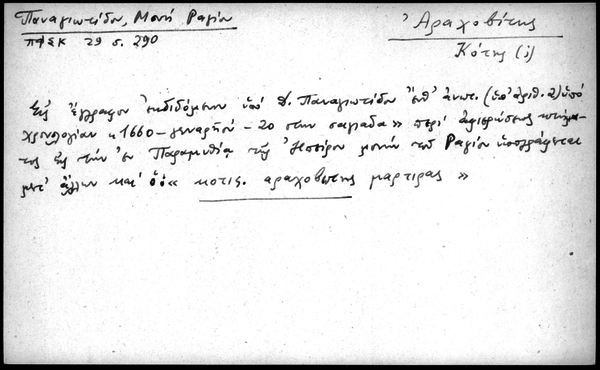 Παναγιωτίδου, Μονή Ραγίου
ΠΦΣΚ 29 σ. 290
Ἀραχοβίτης
Κότης (ὁ)
Εἰς ἔγγραφον ἐκδιδόμενον ὑπό Δ. Παναγιωτίδου ἔνθ' ἀνωτ. (ὑπ' ἀριθ. 2) ὑπό
χρονολογίαν « 1660 – γεναρηού – 20 στην σαγιαδα » περί ἀφιερώσεως κτήμα-
τος εἰς τήν ἐν Παραμυθίᾳ τῆς Ἠπείρου μονήν τοῦ Ραγίου ὑπογράφεται
μετ' ἄλλων καί ὁ « κοτις. αραχοβιτης μαρτιρας »